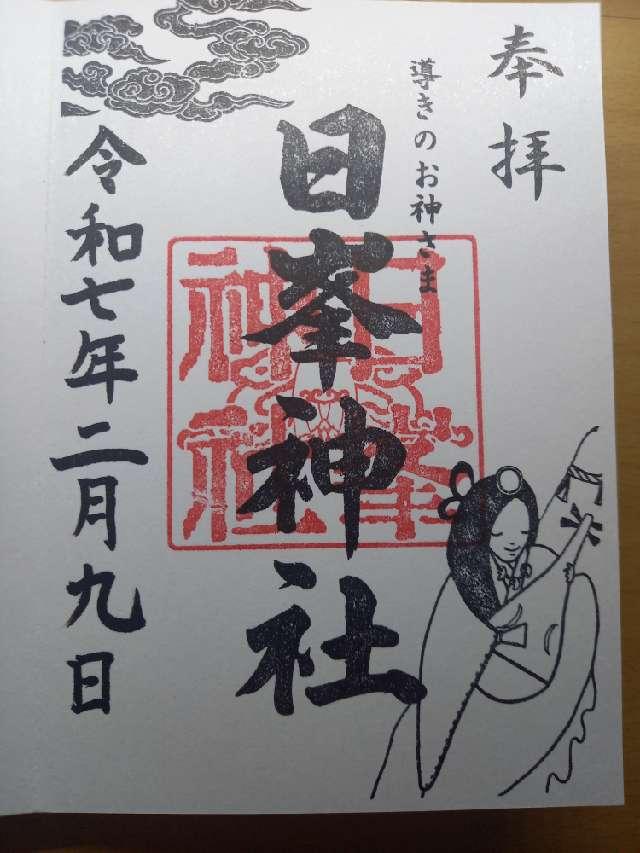 奉拝
導きのお神さま
日峯神社
日峯神社
令和七年二月九日